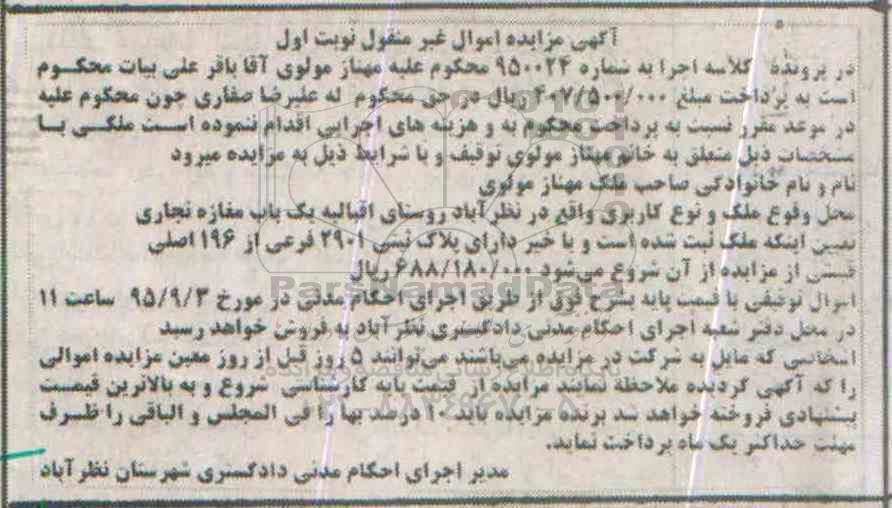 آگهی مزایده اموال غیر منقول نوبت اول
در پرونده کلاسه اجرا به شماره ۹۵۰۰۲۴ محکوم علیه مهناز مولوی آقا باقر علی بیات محکوم
است به پرداخت مبلغ ۴۰۷/۵۰۰/۰۰۰ ریال در حق محکوم له علیرضا صفاری چون محکوم علیه
در موعد مقرر نسبت به پرداخت محکوم به و هزینه های اجرایی اقدام ننموده است ملکی با
مشخصات ذیل متعلق به خانم مهناز مولوی توقیف و با شرایط ذیل به مزایده میرود
نام و نام خانوادگی صاحب ملک مهناز مولوی
محل وقوع ملک و نوع کاربری واقع در نظرآباد روستای اقبالیه یک باب مغازه تجاری
تعیین اینکه ملک ثبت شده است و یا خیر دارای پلاک ثبتی ۲۹۰۱ فرعی از ۱۹۶ اصلی
قیمتی از مزایده از آن شروع می‌شود ۶۸۸/۱۸۰/۰۰۰ ریال
ParsNamadData
اموال توقیفی با قیمت پایه بشرح فوق از طریق اجرای احکام مدنی در مورخ ۹۵/۹/۳ ساعت ۱۱
در محل دفتر شعبه اجرای احکام مدنی دادگستری نظرآباد به فروش خواهد رسید
اشخاصی که مایل به شرکت در مزایده می‌باشند می‌توانند ۵ روز قبل از روز معین مزایده اموالی
را که آگهی گردیده ملاحظه نمایند مزایده از قیمت پایه کارشناسی شروع و به بالاترین قیمت
پیشنهادی فروخته خواهد شد برنده مزایده باید ۱۰ درصد بها را فی المجلس و الباقی را ظرف
مهلت حداکثر یک ماه پرداخت نماید.
مدیر اجرای احکام مدنی دادگستری شهرستان نظرآباد